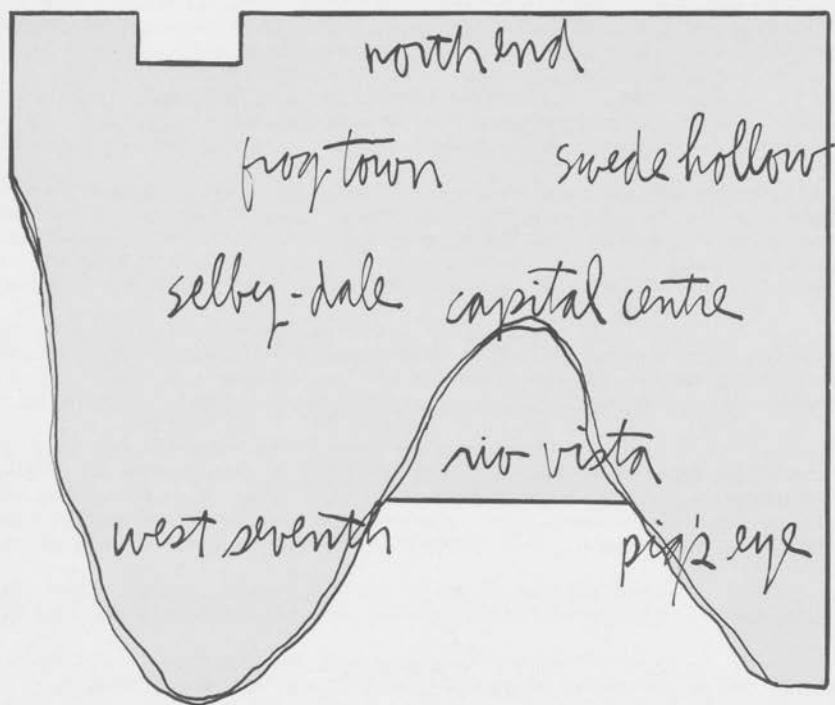 north end
frogtown
swede hollow
selby-dale
capital centre
rio vista
west seventh
pig's eye